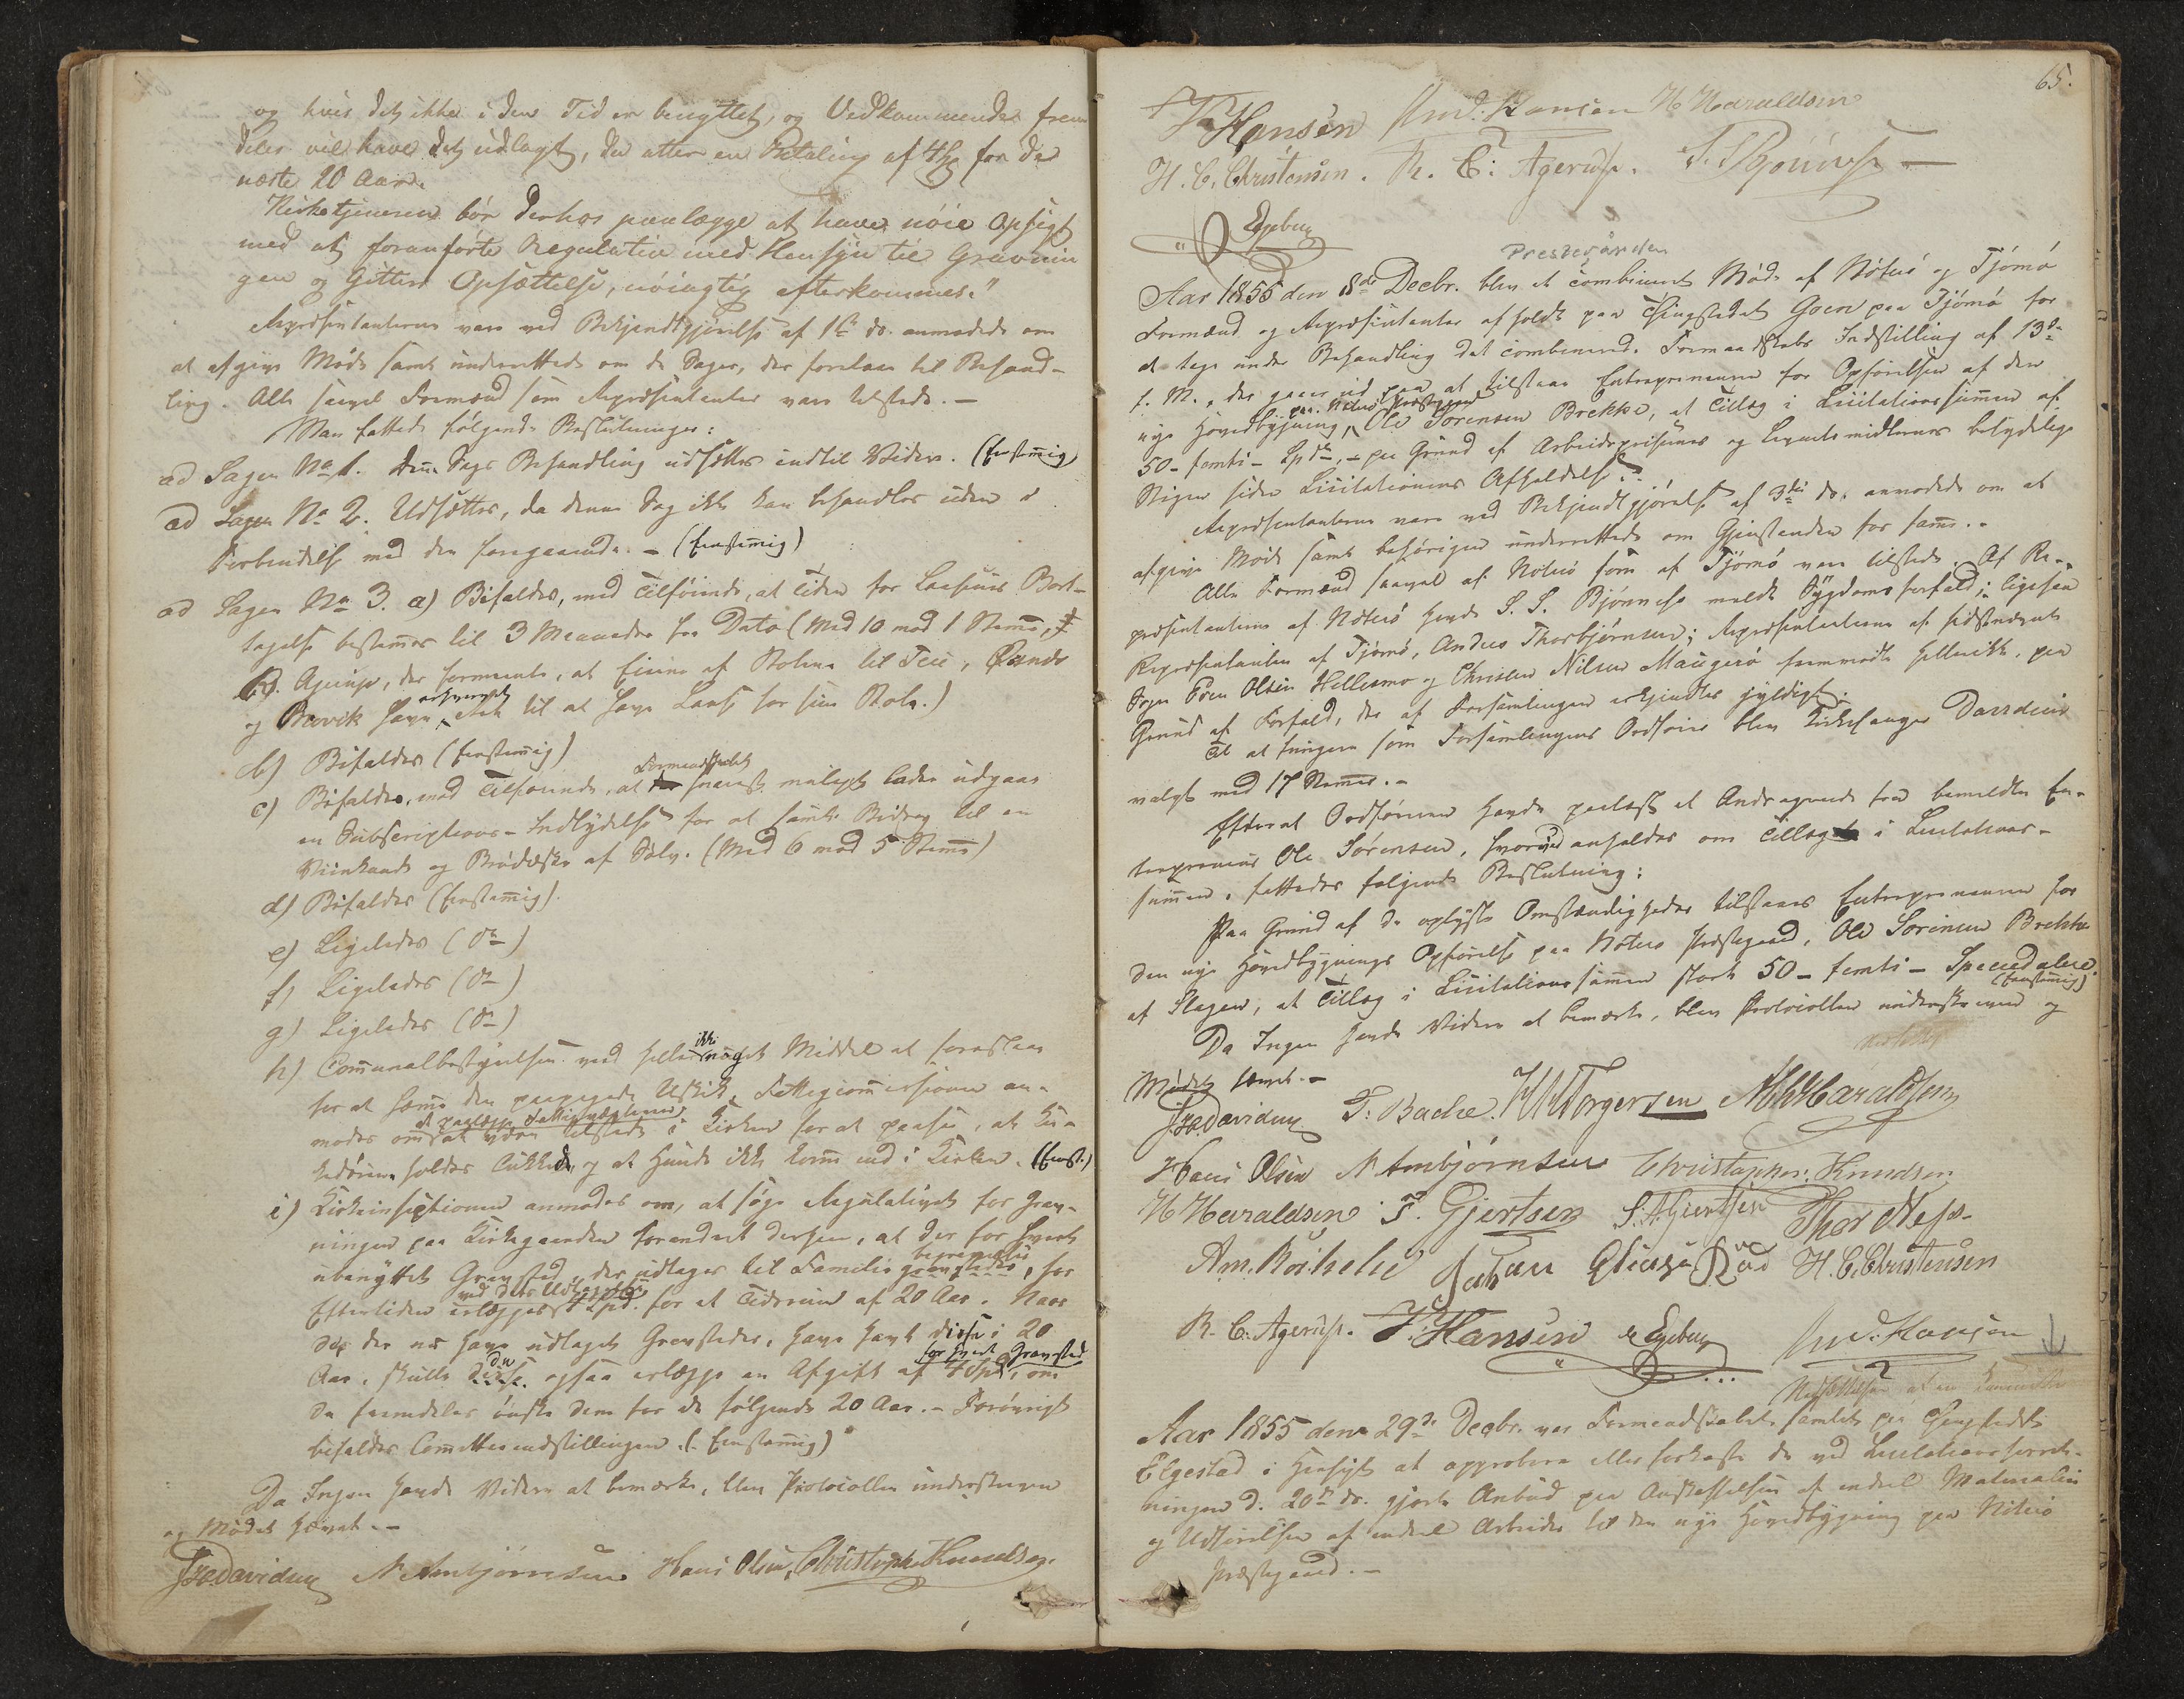 og hvis det ikke i den Tid er benyttet, og Vedkommende frem
deles vil have det udlagt, da atter en Betaling af 4 for de
næste 20 Aar.
Kirketjeneren bør derhos paalægge at have nøie Opsigt
med at foranførte Regulativ med Hensyn til Gravnin
gen og Gitters Opsættelse, nøiagtig efterkommes."
Repræsentanterne vare ved Bekjendtgjørelse af 1ste ds. anmodede om
at afgive Møde samt underrettede om de Sager, der forelaae til Behand-
ling. Alle saavel Formænd som Repræsentanter vare tilstede. -
Man fattede følgende Beslutninger:
ad Sagen No 1. Denne Sags Behandling udsættes indtil Videre. (Eenstemig)
ad Sagen No 2. Udsættes, da denne Sag ikke kan behandles uden i
Forbindelse med den foregaaende. - (Eenstemig)
ad Sagen No 3. a) Bifaldes, med Tilføiende, at Tiden for Laasenes Bort-
tagelse bestemes til 3 Maaneder fra Dato (Med 10 mod 1 Steme,
Agerup, der formeente, at Eierne af Stolene til Teie,
og Brevik have Ret til at have Laas for sine Stole.)
b) Bifaldes (Eenstemig)
c) Bifaldes, med Tilføiende, at Formandskabet snarest muligt lader udgaae
en Subscriptions-Indbydelse for at samle Bidrag til en
Viinkande og Brødæske af Sølv. (Med 6 mod 5 Stemer)
d) Bifaldes (Eenstemig).
e) Ligeledes (do)
f) Ligeledes (do)
g) Ligeledes (do)
h) Comunalbestyrelsen veed heller ikke noget Middel at foreslaae
for at hæmme den paapegede Uskik. Fattigcommissionen an-
modes om at paalægge Fattigvægterne at være tilstede i Kirken for at paasee, at Kir-
kedørene holdes lukkede, og at Hunde ikke komme ind i Kirken. (Eenst.)
i) Kirkeinspectionen anmodes om, at søge Regulativet for Grav-
ningen paa Kirkegaarden forandret derhen, at der for hvert
ubenyttet Gravsted, der udlages til Familie begravelse, for
Eftertiden ved dets Udlæggelse erlægges 4 Spd. for et Tidsrum af 20 Aar. Naar
de der nu have udlagte Gravsteder, have havt disse i 20
Aar, skulle de ogsaa erlægge en Afgift af 4 Spd for hvert Gravsted, om
de fremdeles ønske dem for de følgende 20 Aar. - Forøvrigt
bifaldes Comitteeindstillingen. (Eenstemig)
Da Ingen havde Videre at bemærke, blev Protocollen underskreven
og Mødet hævet. -
Davidsen N Ambjørnsen Hans Olsen, Christopher Knudsen.
65.
Hansen And: Hansen H Haraldsen
H. C. Christensen. R. C: Agerup. S. S Bjønnes -
Egeberg
Prestegården
Aar 1855 den 18de Decbr. blev et combineret Møde af Nøterø og Tjømø
Formænd og Repræsentanter afholdt paa Thingstedet Goen paa Tjømø for
at tage under Behandling det combinerede Formandskabs Indstilling af 13de
f. M., der gaaer ud paa at tilstaae Entrepreneuren for Opførelsen af den
nye Hovedbygning paa Nøterø Præstegaard, Ole Sørensen Brekke, et Tillæg i Licitationssummen af
50 - femti - Spd, - paa Grund af Arbeidspriisernes og Levnetsmidlernes betydelige
Stigen siden Licitationens Afholdelse.
Repræsentanterne vare ved Bekjendtgjørelse af 3die ds. anmodede om at
afgive Møde samt behørigen underrettede om Gjenstanden for samme. -
Alle Formænd saavel af Nøterø som af Tjømø vare tilstede. Af Re-
præsentanterne af Nøterø havde S. S. Bjønnes meldt Sygdomsforfald; ligesaa
Repræsentanten af Tjømø, Anders Thorbjørnsen; Repræsentanterne af sidstnævnte
Sogn Even Olsen Hellesmo og Christen Nilsen Maugerø fremmødte hellerikke, paa
Grund af Forfald, der af Forsamlingen erkjendtes gyldigt.
Til at fungere som Forsamlingens Ordfører blev Kirkesanger Davidsen
valgt med 17 Stemmer. -
Efterat Ordføreren havde oplæst et Andragende fra bemeldte En-
trepreneur Ole Sørensen, hvorved anholdes om Tillæg i Licitations-
summen, fattedes følgende Beslutning:
Paa Grund af de oplyste Omstændigheder tilstaaes Entrepreneuren for
den nye Hovedbygnings Opførelse paa Nøterø Præstegaard, Ole Sørensen Brekke
af Slagen, et Tillæg i Licitationssummen stort 50 - femti - Speciedaler. (Eenstemig)
Da Ingen havde Videre at bemærke, blev Protocollen underskreven og
Mødet hævet. -
Davidsen T. Bache. Torgersen Haraldsen
Hans Olsen N Ambjørnsen Christopher. Knudsen
H Haraldsen F. Gjertsen S. A. Gjertsen Thor Næss-
Johan Rød H. C. Christensen
R. C. Agerup. Hansen Egeberg And: Hansen
Aar 1855 den 29de Decbr. var Formandskabet samlet paa Thingstedet
Elgestad i Hensigt at approbere eller forkaste de ved Licitationsforret-
ningen d. 20de ds. gjorte Anbud paa Anskaffelsen af endeel Materialier
og Udførelsen af endeel Arbeider til den nye Hovedbygning paa Nøterø
Præstegaard. -